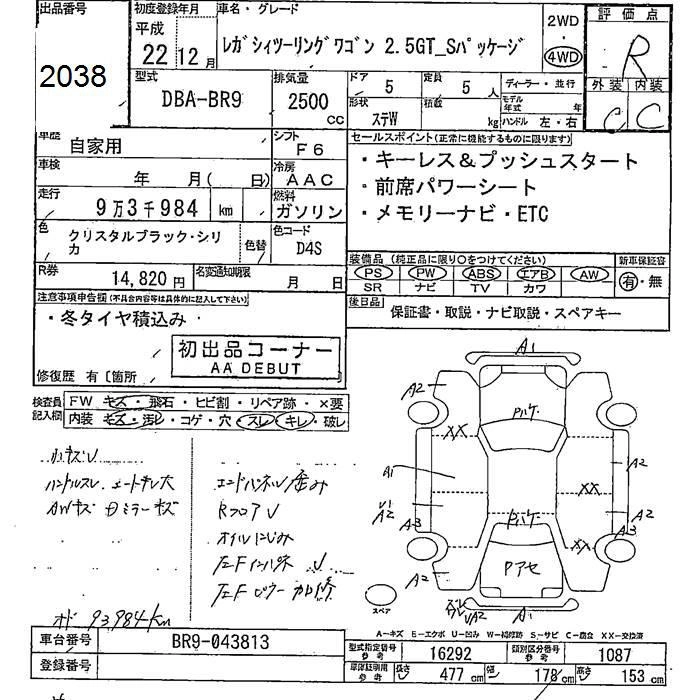 出品番号
2038
初度登録年月
平成
22 12月
車名・グレード
レガシィツーリングワゴン 2.5GT_Sパッケージ
2WD
・
4WD
評価点
R
外装 内装
C C
型式
DBA-BR9
排気量
2500
CC
ドア
5
定員
5 人
形状
ステW
積載
kg
ディーラー・並行
モデル年式 年
ハンドル 左・右
車歴
自家用
シフト
F6
車検
年 月( 日)
冷房
AAC
走行
9万3千984 km
燃料
ガソリン
色
クリスタルブラック・シリカ
色替
色コード
D4S
R券
14,820円
名変通知期限
月 日
セールスポイント(正常に機能するものに限ります)
・キーレス&プッシュスタート
・前席パワーシート
・メモリーナビ・ETC
装備品 (純正品に限り○をつけてください)
新車保証書
PS PW ABS エアB AW
SR ナビ TV カワ
有・無
後日品
保証書・取説・ナビ取説・スペアキー
注意事項申告欄(不具合内容等は具体的に記入して下さい)
・冬タイヤ積込み
初出品コーナー
AA DEBUT
修復歴 有〔箇所
検査員
記入欄
FW キズ・飛石・ヒビ割・リペア跡・×要
内装 キズ・汚レ・コゲ・穴・スレ・キレ・破レ
小キズU
ハンドルスレ
AWキズ
ミラーキズ
エンドパネル歪み
RフロアU
オイルにじみ
オド 93984km
A1
A2
Pハゲ
XX
A2
A1
XX
U1
A2
A2
A3
Pハゲ
A3
XX
A2
Pアセ
A2
UA2
A1
スペア
A－キズ E－エクボ U－凹み W－補修跡 S－サビ C－腐食 XX－交換済
車台番号
BR9-043813
登録番号
型式指定番号
参考
16292
類別区分番号
参考
1087
車庫証明用
参考
長さ 477 cm 幅 178 cm 高さ 153 cm